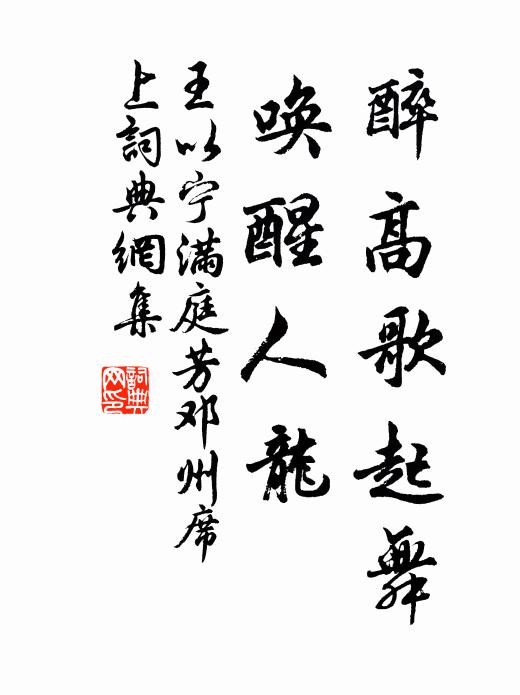 醉高歌起舞
唤醒人龍
王以宁滿庭芳邓州席
上詞典網集
詞典网印